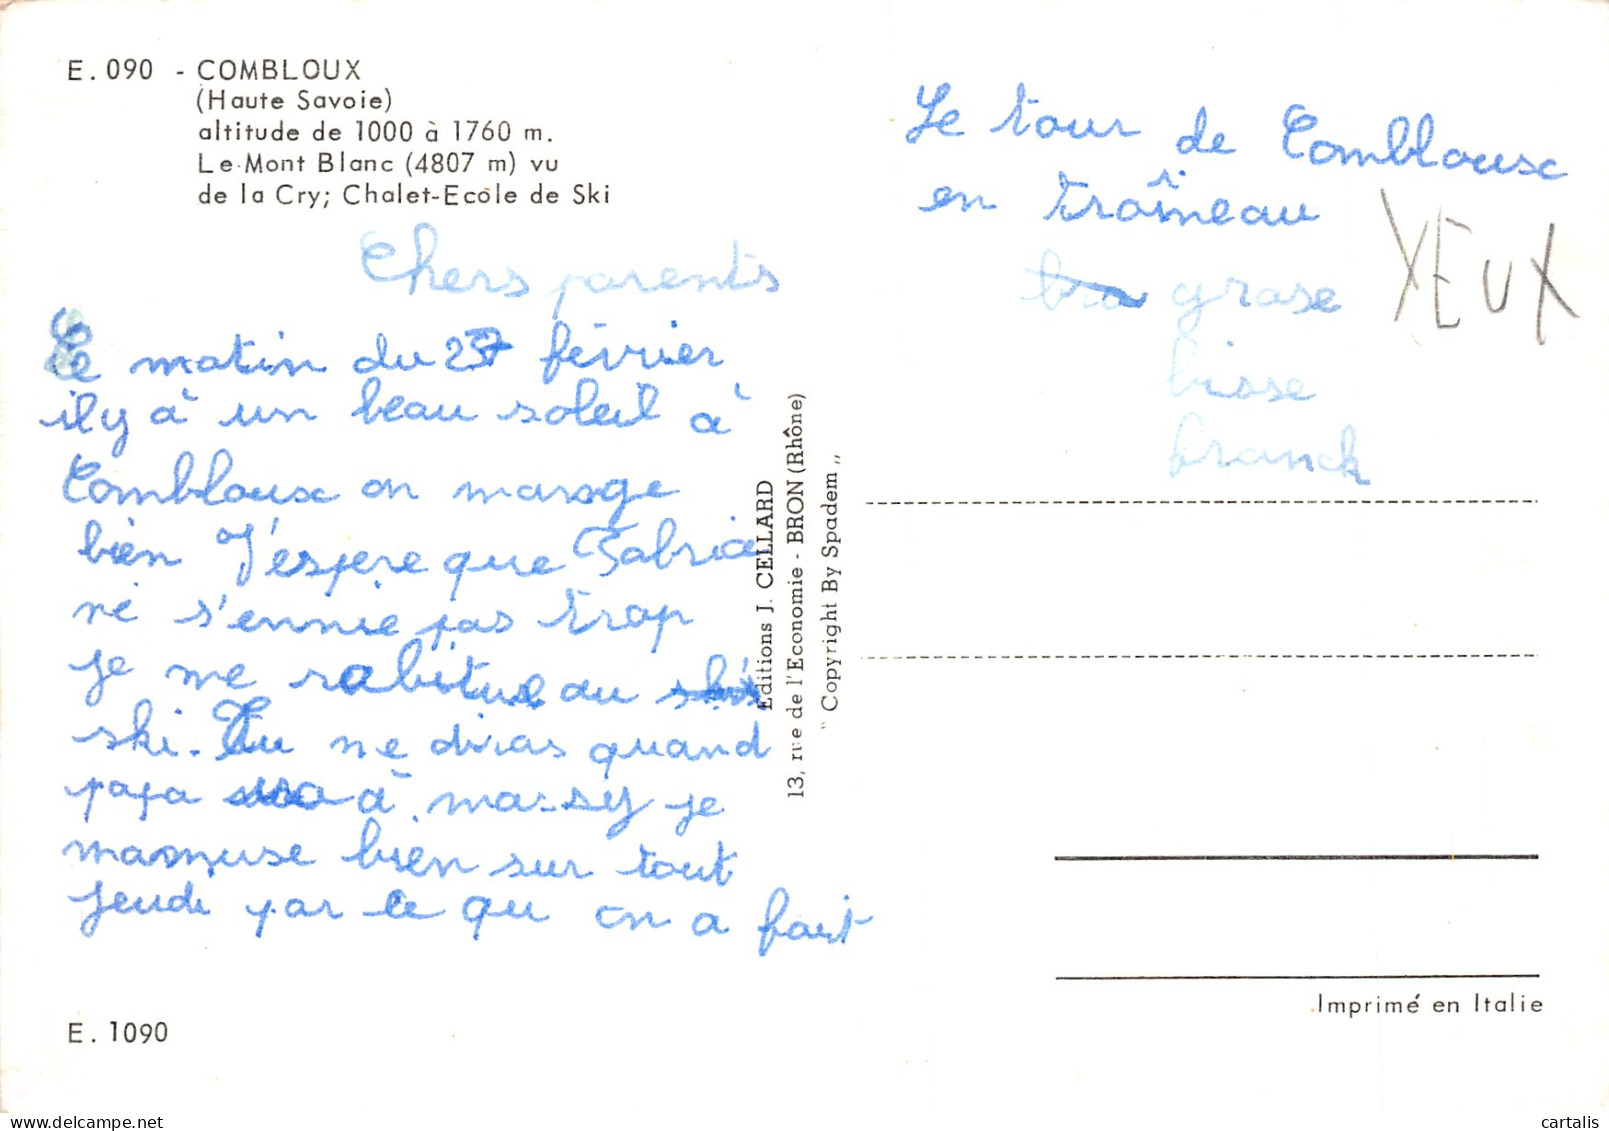 E. 090 - COMBLOUX
(Haute Savoie)
altitude de 1000 à 1760 m.
Le Mont Blanc (4807 m) vu
de la Cry; Chalet-Ecole de Ski
Chers parents
Ce matin du 27 février
il y à un beau soleil à
Comblouse on marage
bien J'espere que Fabrice
ne s'ennie pas trop
je me rabitue au
ski. Tu me diras quand
papa à massy je
mamuse bien sur tout
jeudi par ce qu on a fait
E. 1090
Editions J. CELLARD
13, rue de l'Economie - BRON (Rhône)
" Copyright By Spadem "
Le tour de Comblouse
en traîneau
grose
bisse
franck
YEUX
Imprimé en Italie
cartalis
delcampe.net